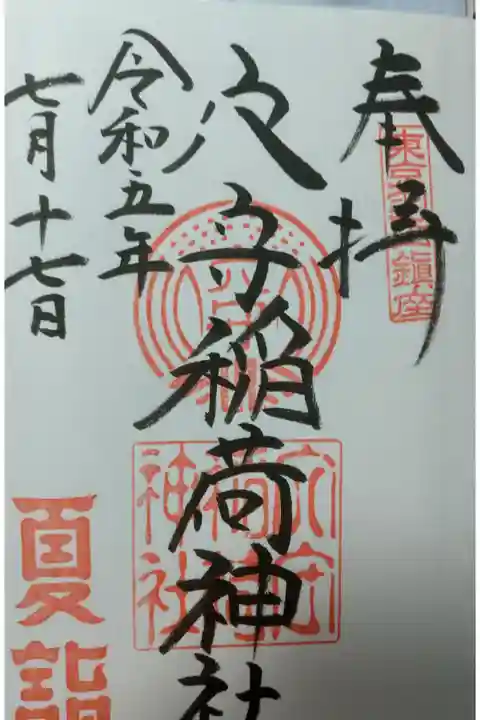 奉拝
東京羽田鎮座
穴守稲荷神社
穴守稲荷神社
令和五年
七月十七日
夏詣